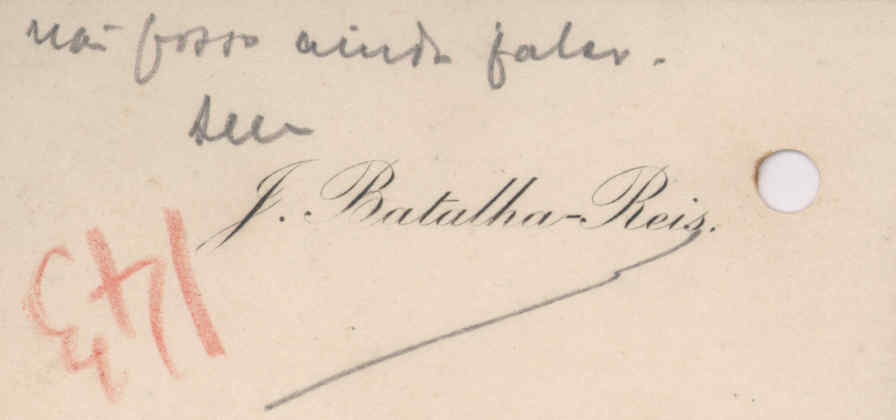 não posso ainda falar.
Seu
J. Batalha-Reis.
143